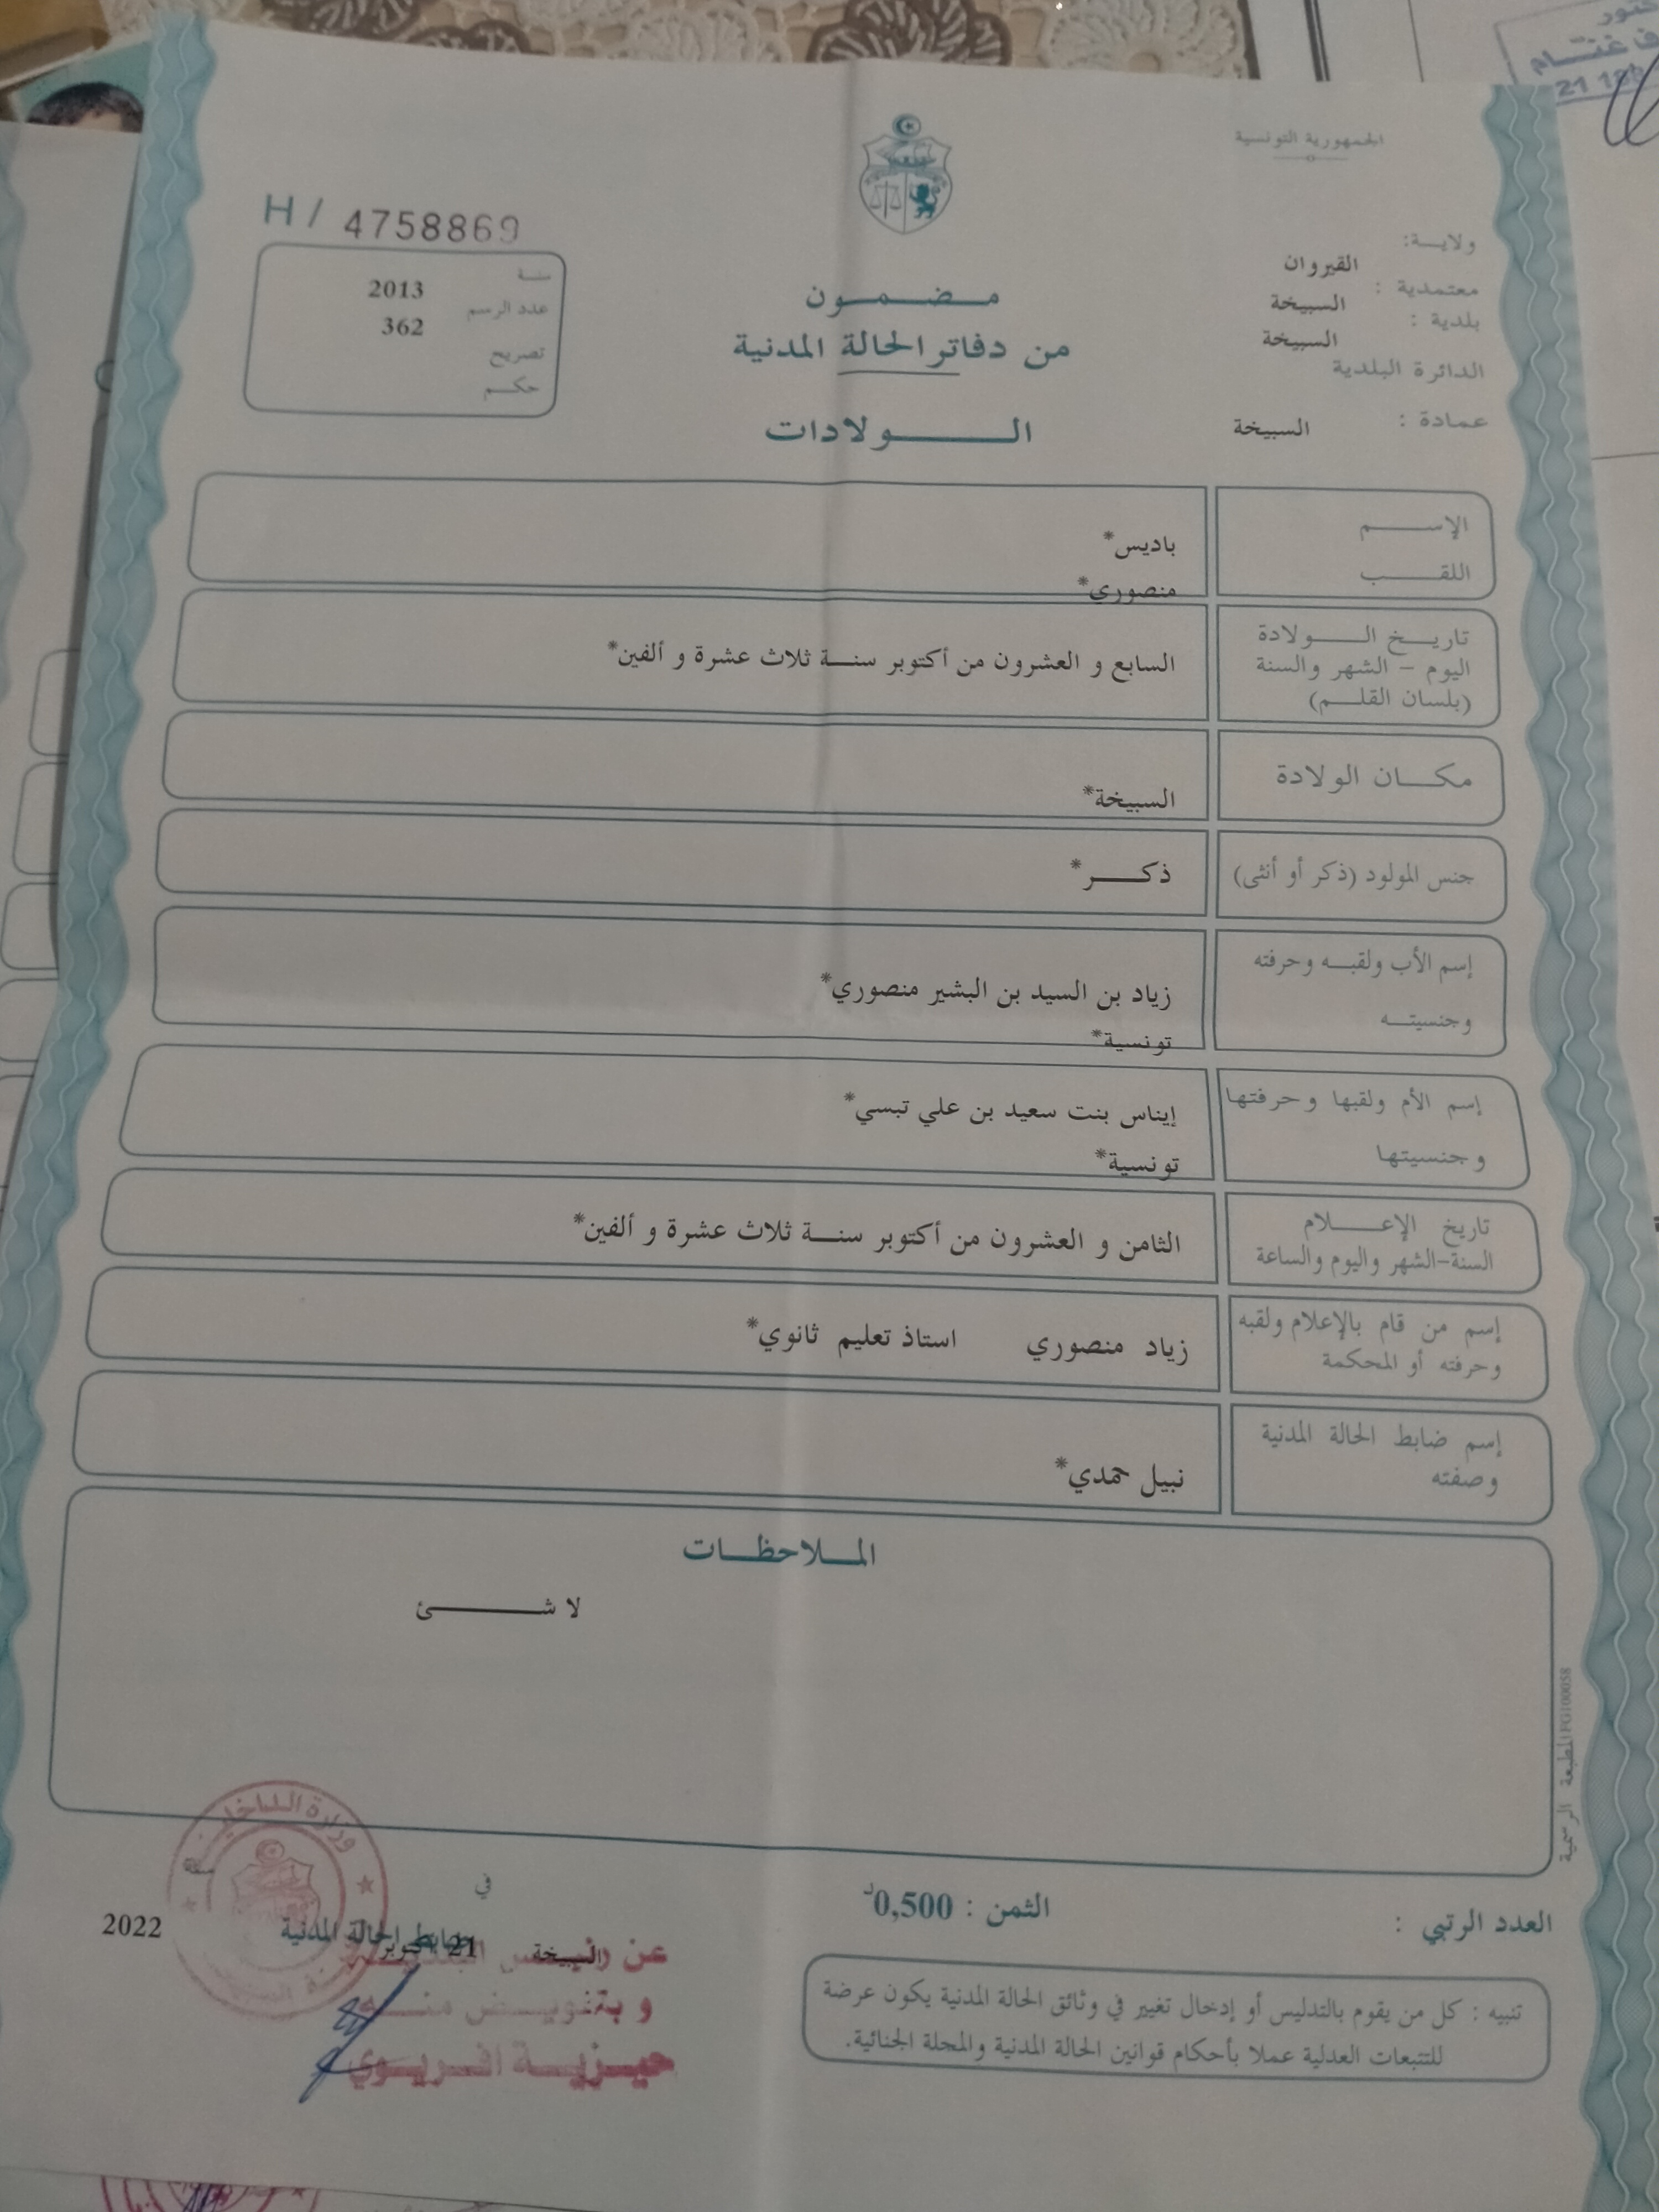 الجمهورية التونسية
H / 4758869
سنة 2013
عدد الرسم 362
تصريح
حكم
ولاية: القيروان
معتمدية : السبيخة
بلدية : السبيخة
الدائرة البلدية
عمادة : السبيخة
مضمون
من دفاتر الحالة المدنية
الولادات
الإسم باديس*
اللقب منصوري*
تاريخ الولادة
اليوم - الشهر والسنة السابع و العشرون من أكتوبر سنة ثلاث عشرة و ألفين*
(بلسان القلم)
مكان الولادة السبيخة*
جنس المولود (ذكر أو أنثى) ذكر*
إسم الأب ولقبه وحرفته زياد بن السيد بن البشير منصوري*
وجنسيته تونسية*
إسم الأم ولقبها وحرفتها إيناس بنت سعيد بن علي تبسي*
وجنسيتها تونسية*
تاريخ الإعلام الثامن و العشرون من أكتوبر سنة ثلاث عشرة و ألفين*
السنة-الشهر واليوم والساعة
إسم من قام بالإعلام ولقبه زياد منصوري استاذ تعليم ثانوي*
وحرفته أو المحكمة
إسم ضابط الحالة المدنية
وصفته نبيل حمدي*
الملاحظات
لا شئ
المطبعة الرسمية FG100058
العدد الرتبي :
الثمن : 0,500د
تنبيه : كل من يقوم بالتدليس أو إدخال تغيير في وثائق الحالة المدنية يكون عرضة
للتتبعات العدلية عملا بأحكام قوانين الحالة المدنية والمجلة الجنائية.
وزارة الداخلية
في
السبيخة 21 2022
ضابط الحالة المدنية
عن رئيس
و بتفويض منه